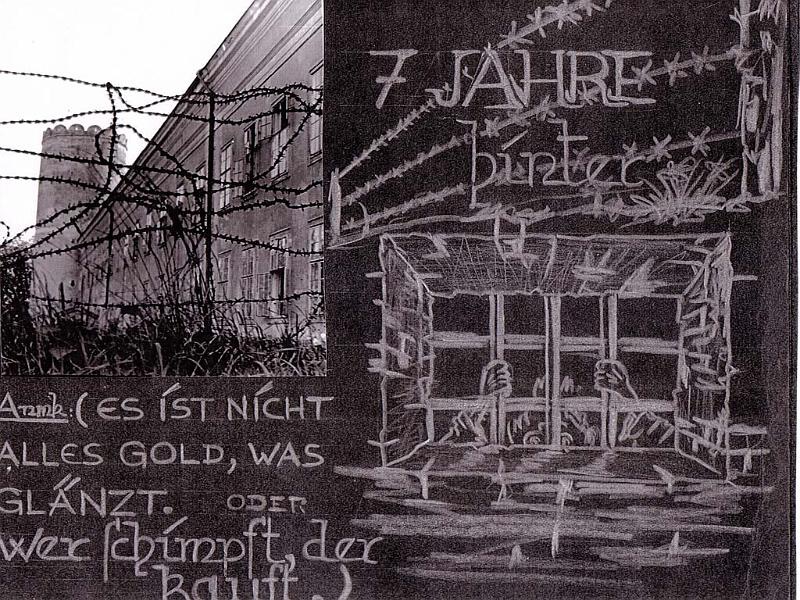 7 JAHRE
hinter
Anmk.: (ES IST NICHT
ALLES GOLD, WAS
GLÄNZT. ODER
wer schimpft, der
kauft.)